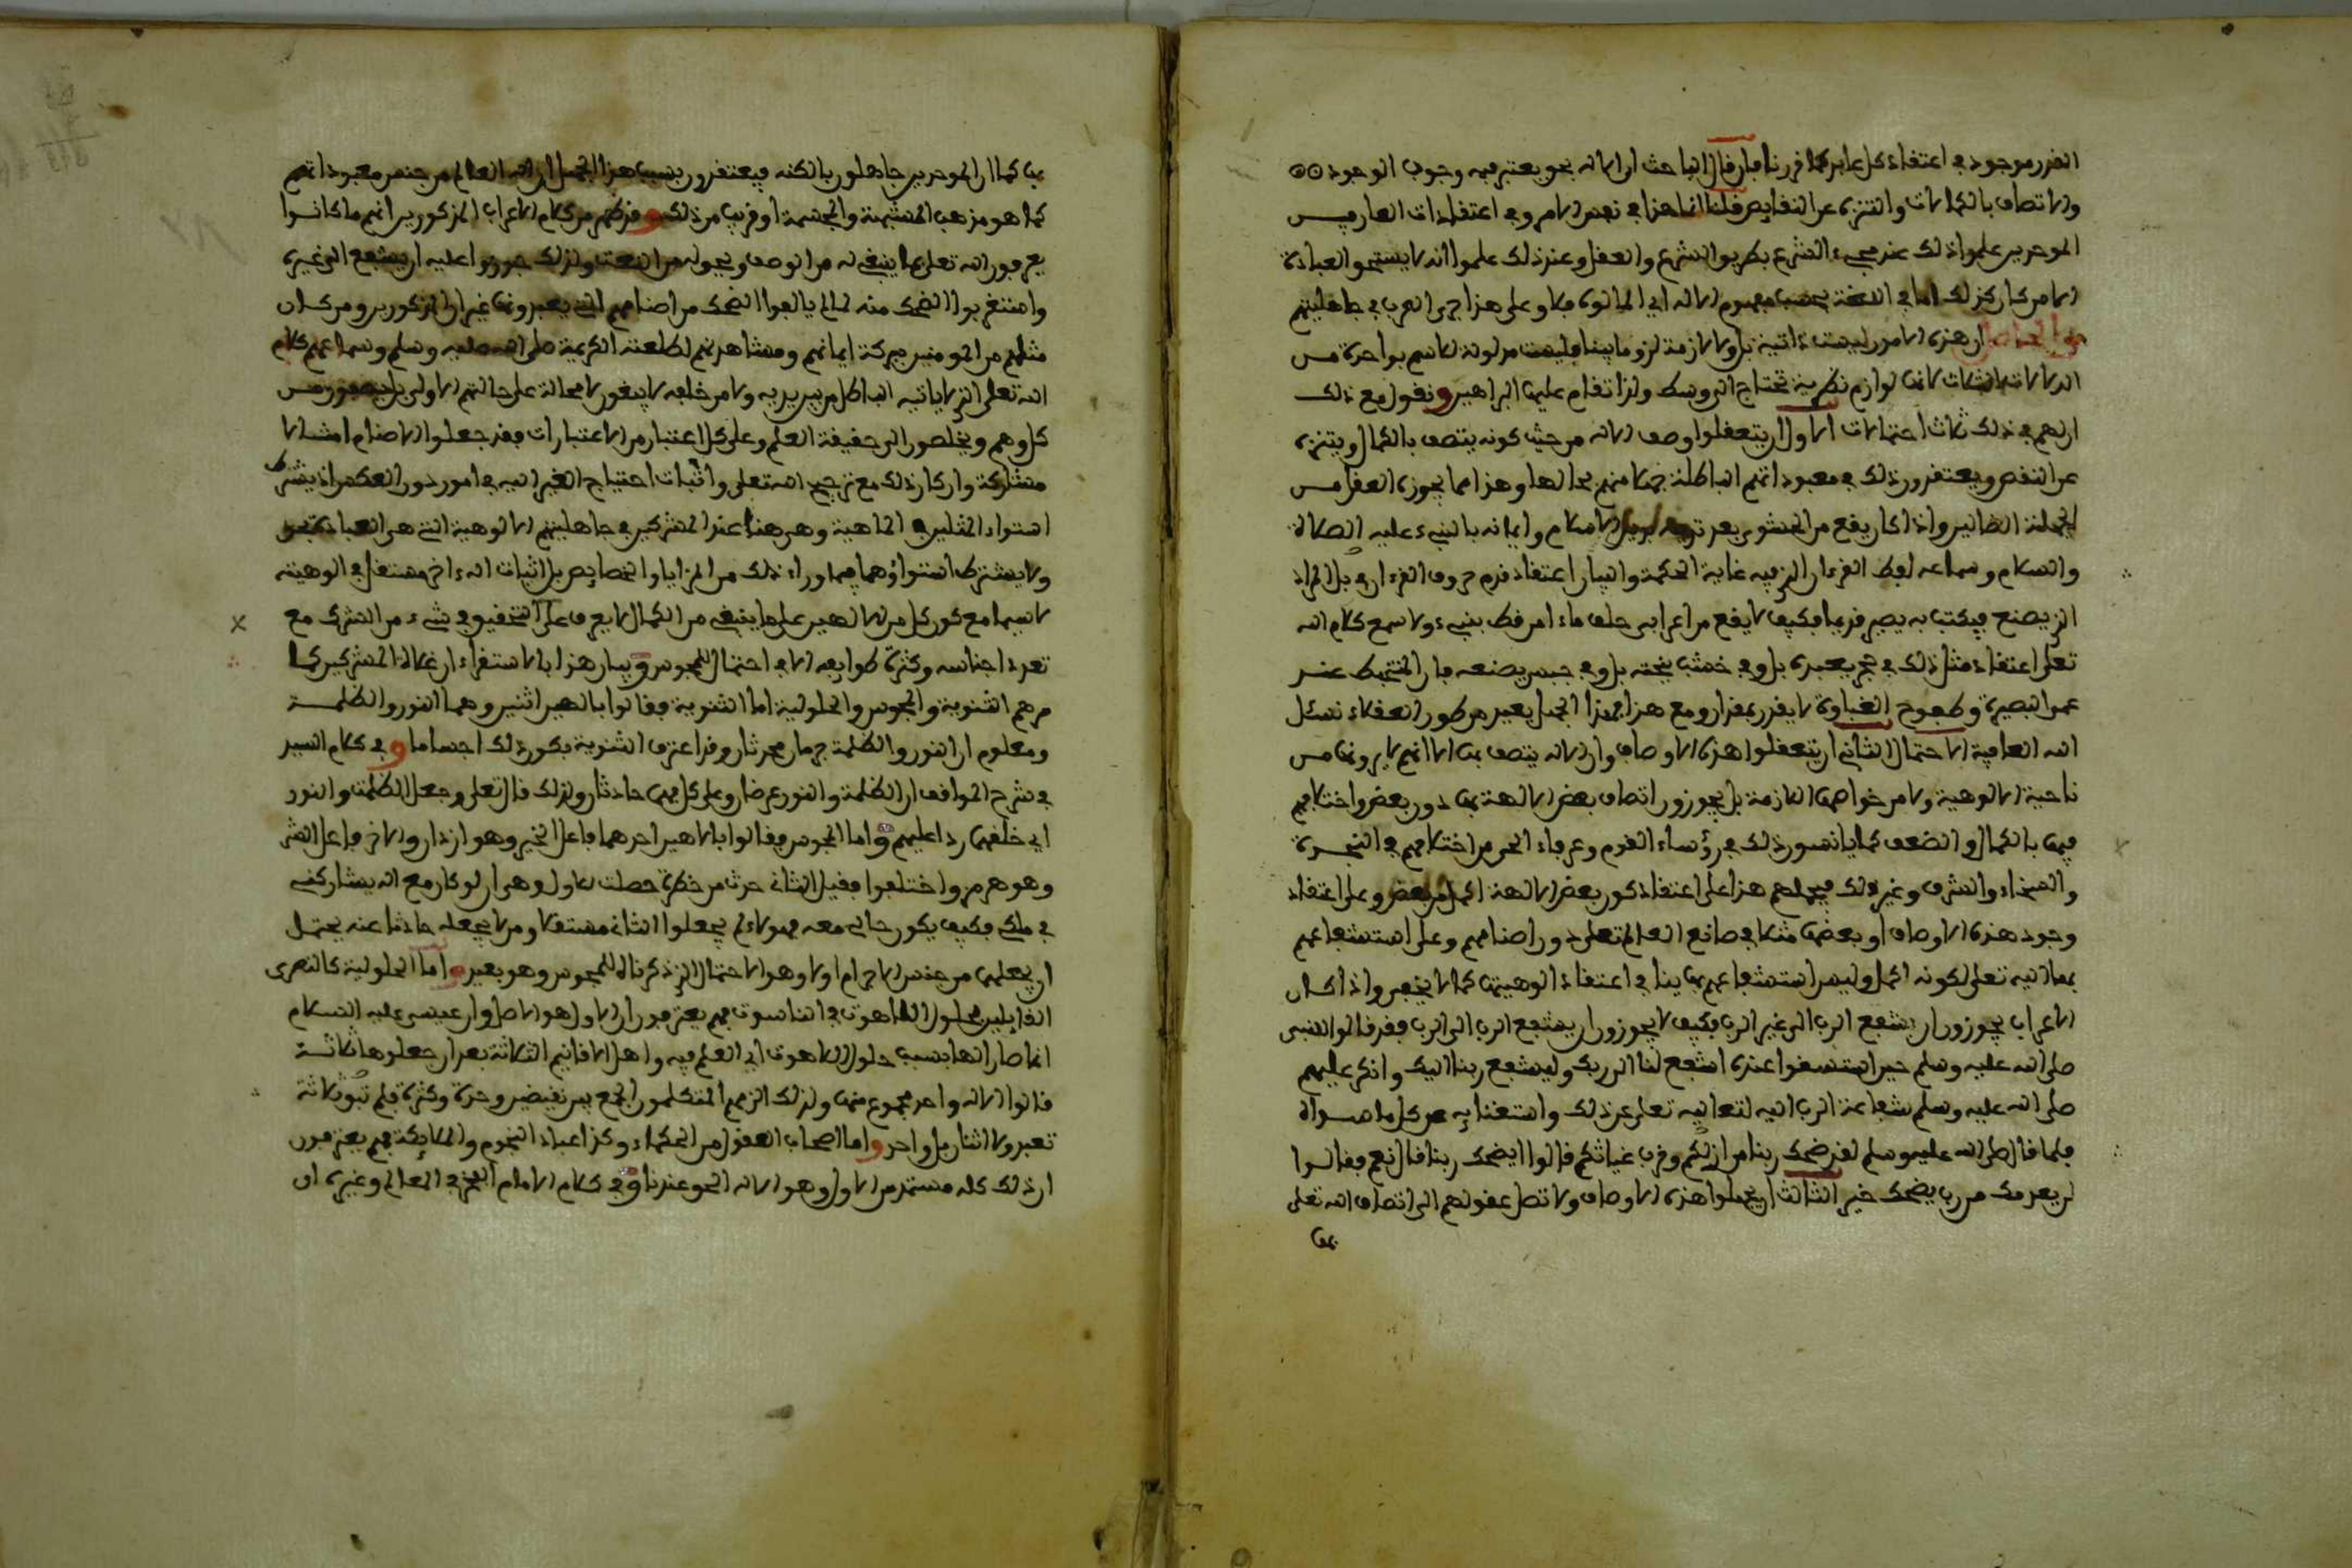 القدر موجود في اعتقاد كل عابد كما قررنا فإن قال الباحث أن الإله نحو يعتبر فيه وجوب الوجود
والاتصاف بالكمالات والتنزه عن النقايص قلنا إنما هذا في نفس الأمر وفي اعتقادات العارفيـــن
الموحدين علموا ذلك عند مجيء الشرع بطريق الشرع والعقل وعند ذلك علموا أنه لا يستحق العبادة
إلا من كان كذلك أما في اللغة بحسب مفهوم الإله أي المألوه فلا وعلى هذا جرى العرب في جاهليتهم
أن هذه الأمور ليست ذاتية بل ولا لازمة لزوما بينا فليست مدلولة للاسم بواحدة مـــن
الدلالات الثلاث لأنها لوازم نظرية تحتاج إلى وسط ولذا تقام عليها البراهين ونقول مع ذلك
إن لهم في ذلك ثلاث احتمالات الأول أن يتعقلوا وصف الإله من حيث كونه يتصف بالكمال ويتنزه
عن النقص ويعتقدون ذلك في معبوداتهم الباطلة جهلا منهم بحالها وهذا مما يجوزه العقل مـــن
الجملة الضالين وإذا كان يقع من الحشوي بعد الإسلام وإيمانه بالنبيء عليه الصلاة
والسلام وسماعه لفظ القرءان الذي فيه غاية الحكمة والبيان اعتقاد قدم حروف القرءان بل المداد
الذي يصنع فيكتب به يصير قديما فكيف لا يقع من أعرابي جلف ما ءامن قط بنبيء ولا سمع كلام الله
تعلى اعتقاد مثل ذلك في حجر يعبده بل وفي خشب ينحته بل وفي جبس يصنعه فإن التخبط عنـــد
عمى البصيرة وطفوح الغباوة لا يقدر بمقدار ومع هذا فهذا الجهل بعيد من طور العقلاء نسئل
الله العافية الاحتمال الثاني أن يتعقلوا هذه الأوصاف وأن الإله يتصف بها إلا أنهم لا يرونها مـــن
ناحية الألوهية ولا من خواصها اللازمة بل يجوزون اتصاف بعض الآلهة بها دون بعض واختلافهم
فيها بالكمال والضعف كما يأنسون ذلك في رؤساء القوم وعرفاء الحي من اختلافهم في النجـــدة
والسخاء والشرف وغير ذلك فيحملهم هذا على اعتقاد كون بعض الآلهة أكمل من بعض وعلى اعتقاد
وجود هذه الأوصاف أو بعضها مثلا في صانع العالم تعلى دون أصنامهم وعلى استشفاعهم
بها إليه تعلى لكونه أكمل وليس استشفاعهم بها ينافي اعتقاد ألوهيتها كما لا يخفى وإذا كـــان
الأعراب يجوزون أن يشفع الرب إلى غير الرب فكيف لا يجوزون أن يشفع الرب إلى الرب فقد قالوا للنبي
صلى الله عليه وسلم حين استسقوا عنده استشفع لنا إلى ربك وليشفع ربنا إليك وأنكر عليهم
صلى الله عليه وسلم شفاعة الرب إليه لتعاليه تعلى عن ذلك واستغنايه عن كل ما ســـواه
فلما قال صلى الله عليه وسلم لقد ضحك ربنا من أزلكم وقرب غياثكم قالوا أيضحك ربنا قال نعم فقالـــوا
لن يعدمك من رب يضحك خير الثالث أن يجهلوا هذه الأوصاف ولا تصل عقولهم إلى اتصاف الله تعلى
بها
بها كما أن الموحدين جاهلون بالكنه فيعتقدون بسبب هذا الجهل أن إله العالم من جنس معبوداتهم
كما هو مذهب المشبهة والمجسمة أو قريب من ذلك وقد ظهر من كلام الأعراب المذكورين أنهم ما كانـــوا
يعرفون الله تعلى بما ينبغي له من الوصف ويجوز من النعت ولذلك جوزوا عليه أن يشفع إلى غيره
واستغربوا الضحك منه لما لم يالفوا الضحك من أصنامهم التي يعبدونها غير أن المذكورين ومن كـــان
مثلهم من المومنين ببركة إيمانهم ومشاهدتهم لطلعته الكريمة صلى الله عليه وسلم وسماعهم كلام
الله تعلى الذي لا ياتيه الباطل من بين يديه ولا من خلفه لا يبقون لا محالة على حالتهم الأولى بل يصفون مـــن
كل وهم ويخلصون إلى حقيقة العلم وعلى كل اعتبار من الاعتبارات فقد جعلوا الأصنام أمثـــالا
مشاركة وإن كان ذلك مع ترجيح الله تعلى وإثبات احتياج الغير إليه في أمور دون العكس إذ يشترط
استواء المثلين في الماهية وهي هنا عند المشركين في جاهليتهم الألوهية التي هي العبادة بحق
ولا يشترط استواؤهما فيما وراء ذلك من المزايا والخصايص بل إثبات إله ءاخر مستقل في ألوهيته
لا سيما مع كون كل من الإلهين على ما ينبغي من الكمال لا يعرف على التحقيق في شيء من الشرك مع
تعدد أجناسه وكثرة طوايفه إلا في احتمال للمجوس وبيان هذا بالاستقراء أن غلاة المشركين كمـــا
مر هم الثنوية والمجوس والحلولية أما الثنوية فقالوا بإلهين اثنين وهما النور والظلمـــة
ومعلوم أن النور والظلمة جرمان محدثان وقد اعترف الثنوية بكون ذلك أجساما وفي كلام السيد
في شرح المواقف أن الظلمة والنور عرضان وعلى كل فهما حادثان ولذلك قال تعلى وجعل الظلمت والنور
أي خلقهما ردا عليهم وأما المجوس فقالوا بإلاهين أحدهما فاعل الخير وهو ازدان والآخر فاعل الشر
وهو هرمز واختلفوا فقيل الثاني حدث من خطرة حصلت للأول وهي أن لو كان مع إله يشاركني
في ملكي فكيف يكون حالي معه فهؤلاء لم يجعلوا الثاني مستقلا ومن لا يجعله حادثا عنه يحتمـــل
أن يجعلهما من جنس الأجرام أو لا وهو الاحتمال الذي ذكرناه للمجوس وهو بعيد وأما الحلولية كالنصرى
القايلين بحلول اللاهوت في الناسوت فهم يعترفون أن الأول هو الأصل وأن عيسى عليه الســـلام
إنما صار إلها بسبب حلول اللاهوت أي العلم فيه وأهل الأقانيم الثلاثة بعد أن جعلوها ثلاثـــة
قالوا الإله واحد مجموع منها ولذلك ألزمهم المتكلمون الجمع بين نقيضين وحدة وكثرة فلم تبق ثلاثة
تعبد ولا اثنان بل واحد وأما أصحاب العقول من الحكماء وكذا عباد النجوم والملايكة فهم يعترفون
أن ذلك كله مستمد من الأول وهو الإله الحق عندنا وفي كلام الإمام الفخر في المعالم وغيره أن